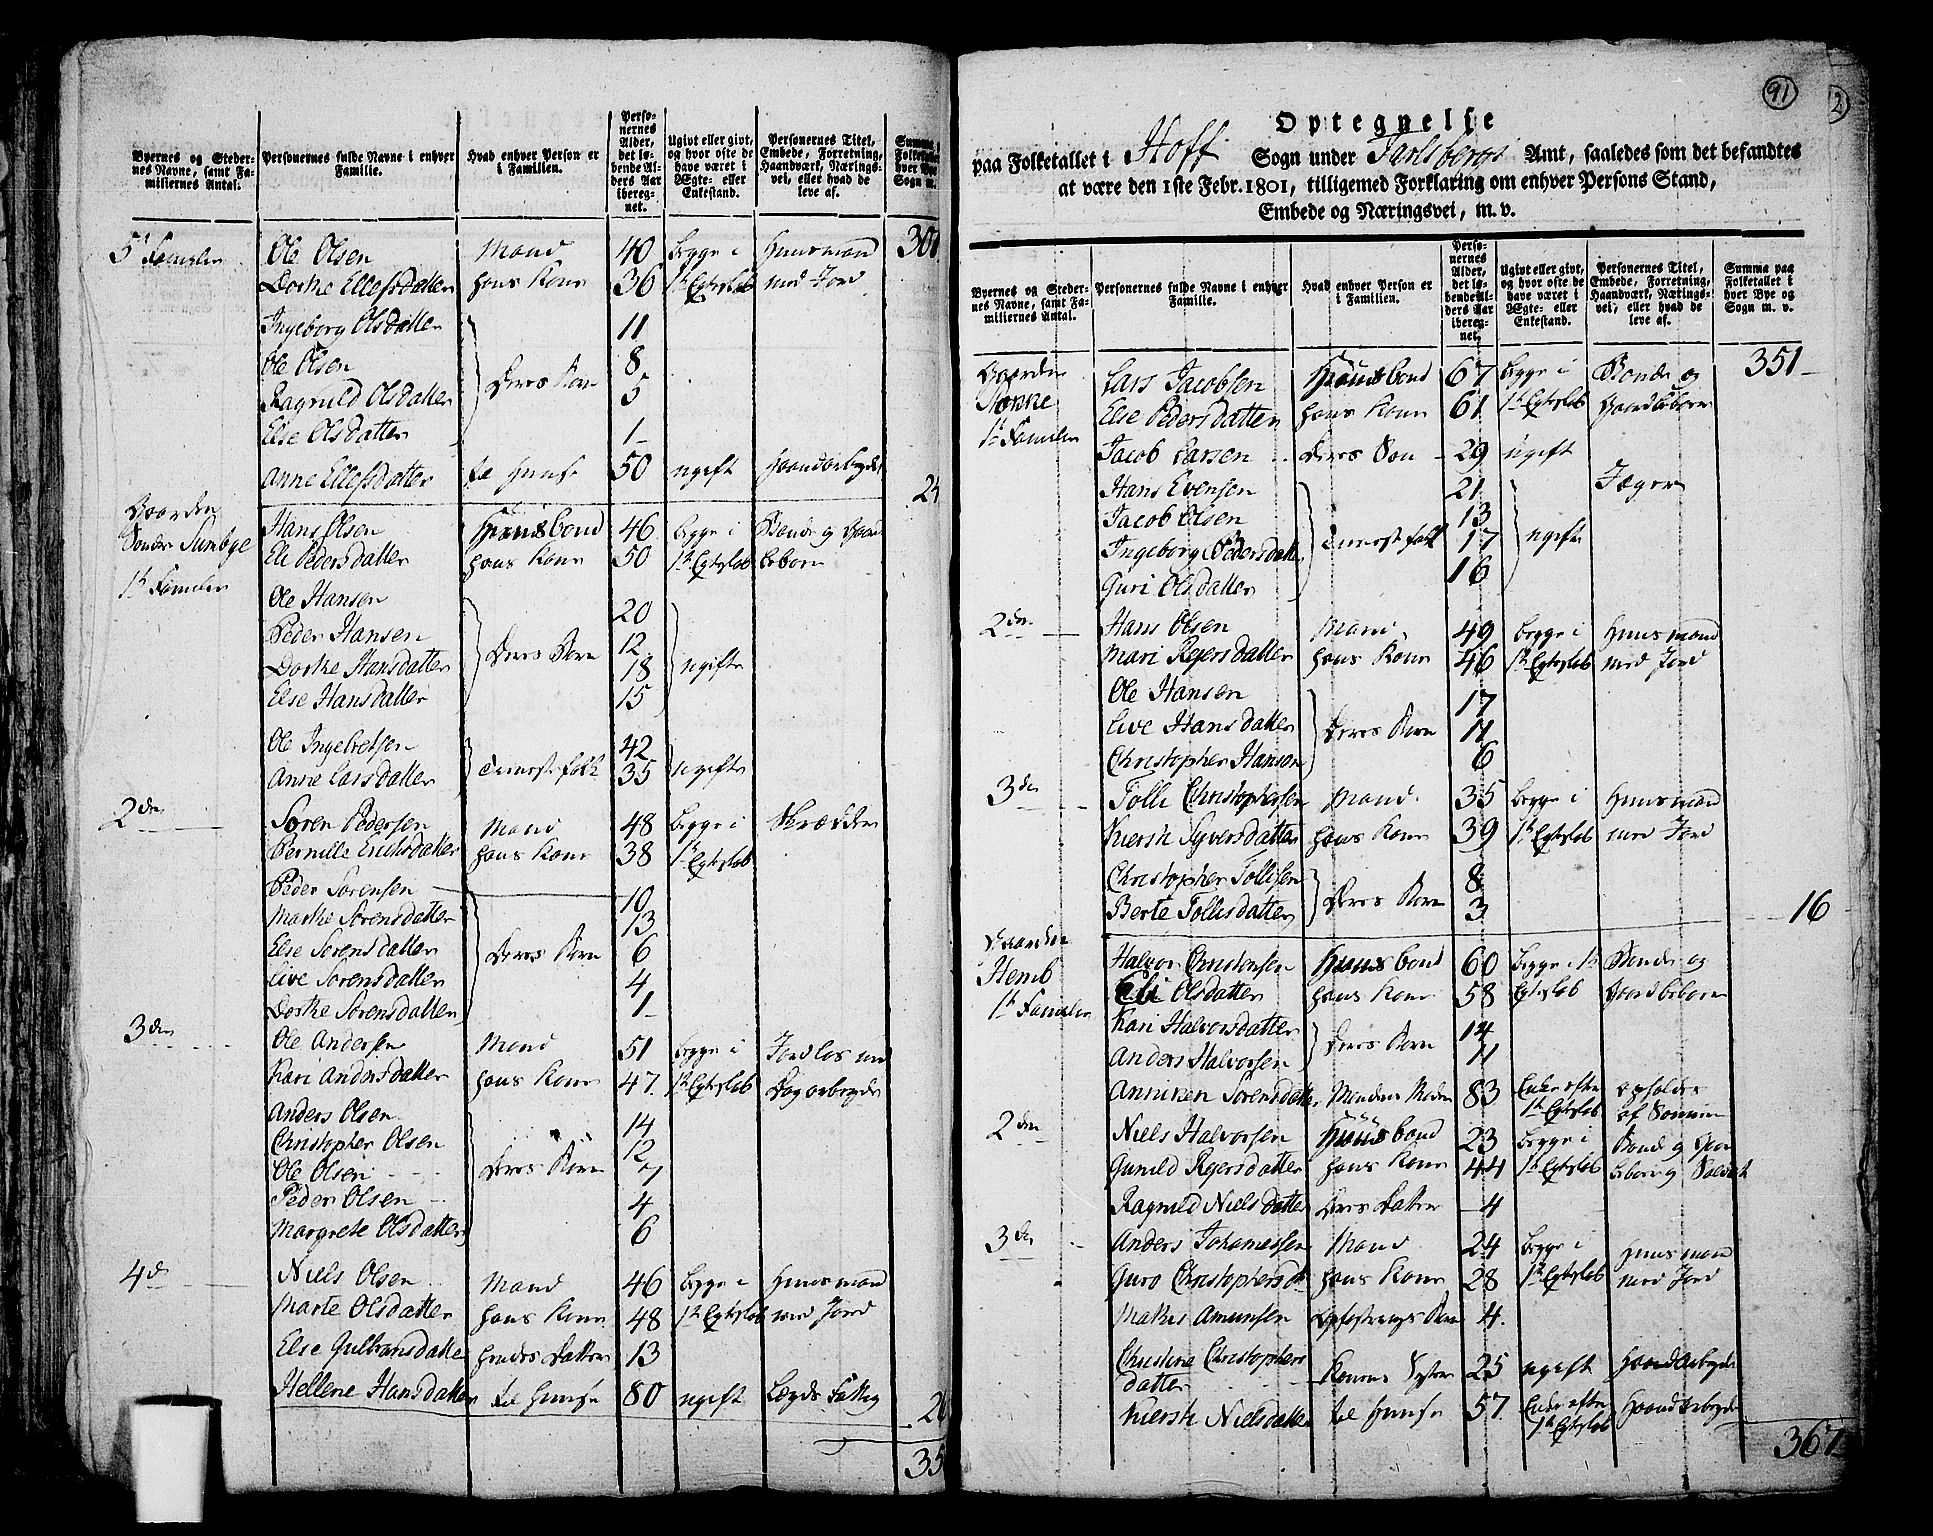 Byernes og Steder-
nes Navne, samt Fa-
miliernes Antal.
Personernes fulde Navne i enhver
Familie.
Hvad enhver Person er
i Familien.
Perso-
nernes
Alder,
det lø-
bende Al-
ders Aar
ibereg-
net.
Ugivt eller givt,
og hvor ofte de
have været i
Ægte- eller
Enkestand.
Personernes Titel,
Embede, Forretning,
Haandværk, Nærings-
vei, eller hvad de
leve af.
5t Familer Ole Olsen Mand 40 begge i Huusmand
Dorthe Ellefsdatter hans Kone 36 1t Egteskab med Jord
Ingeborg Olsdatter 11
Ole Olsen 8
Deres Børn
Ragnild Olsdatter 5
Else Olsdatter 1
Anne Ellefsdatter til Huuse 50 ugift Haandarbeyder
24
Gaarden
Sønder Sumbye
1t Familer
Hans Olsen Huusbond 46 begge i Bonde og Gaard
Eli Pedersdatter hans Kone 50 1t Egteskab beboer
Ole Hansen 20
Peder Hansen 12
Deres Børn ugifte
Dorthe Hansdatter 18
Else Hansdatter 15
Ole Ingebretsen 42
Tienestefolk ugifte
Anne Larsdatter 35
2den Søren Pedersen Mand 48 begge i Skrædder
Pernille Enersdatter hans Kone 38 1t Egteskab
Peder Sørensen 10
Marthe Sørensdatter 13
Else Sørensdatter Deres Børn 6
Live Sørensdatter 4
Dorthe Sørensdatter 1
3den Ole Andersen Mand 51 begge i Jordløs med
Kari Andersdatter hans Kone 47 1t Egteskab Dagarbeyde
Anders Olsen 14
Christopher Olsen 12
Ole Olsen Deres Børn 7
Peder Olsen 4
Margrete Olsdatter 6
4de Niels Olsen Mand 46 begge i Huusmand
Marte Olsdatter hans Kone 48 1t Egteskab med Jord
Else Gulbransdatter hendes Datter 13
Hellene Hansdatter til Huuse 80 ugift Lægds Fattig
91
2
Optegnelse
paa Folketallet i Hoff Sogn under Jarlsbergs Amt, saaledes som det befandtes
at være den 1ste Febr. 1801, tilligemed Forklaring om enhver Persons Stand,
Embede og Næringsvei, m. v.
Byernes og Steder-
nes Navne, samt Fa-
miliernes Antal.
Personernes fulde Navne i enhver
Familie.
Hvad enhver Person er
i Familien.
Perso-
nernes
Alder,
det lø-
bende Al-
ders Aar
ibereg-
net.
Ugivt eller givt,
og hvor ofte de
have været i
Ægte- eller
Enkestand.
Personernes Titel,
Embede, Forretning,
Haandværk, Nærings-
vei, eller hvad de
leve af.
Summa paa
Folketallet i
hver Bye og
Sogn m. v.
351
Gaarden
1t Familer
Lars Jacobsen Huusbond 67 begge i Bonde og
Else Pedersdatter hans Kone 61 1t Egteskab Gaardbeboer
Jacob Larsen Deres Søn 29 ugift
Jæger
Hans Evensen 21
Jacob Olsen 13
Tienestefolk ugifte
Ingeborg Pedersdatter 17
Guri Olsdatter 16
2den Hans Olsen Mand 49 begge i Huusmand
Mari Rejersdatter hans Kone 46 1t Egteskab med Jord
Ole Hansen 17
Live Hansdatter Deres Børn 11
Christopher Hansen 6
3die Tolli Christophersen Mand 35 begge i Huusmand
Kiersti Syversdatter hans Kone 39 1t Egteskab med Jord
Christopher Tollisen 8
Deres Børn
Berte Tollisdatter 3
16
Gaarden
Hemb
1t Familer
Halvor Christensen Huusbond 60 begge i 1t Bonde og
Eli Olsdatter hans Kone 58 Egteskab Gaardbeboer
Kari Halvorsdatter 14
Deres Børn
Anders Halvorsen 11
Anniken Sørensdatter Mandens Moder 83 Enke efter 1t Egteskab opholdes af Sønnen
2den Niels Halvorsen Huusbond 23 begge i Bonde og Gaard
Gunild Rejersdatter hans Kone 44 1t Egteskab beboer og Soldat
Ragnild Nielsdatter Deres Datter 4
3die Anders Johannessen Mand 24 begge i Huusmand
Guro Christophersdr hans Kone 28 1t Egteskab med Jord
Mathis Amunsen Opfostrings Barn 4
Christine Christophers
datter Konens Syster 25 ugift Haandarbeyde
Kiersti Nielsdatter til Huuse 57 Enke efter 1t Egteskab Haandarbeyde
367